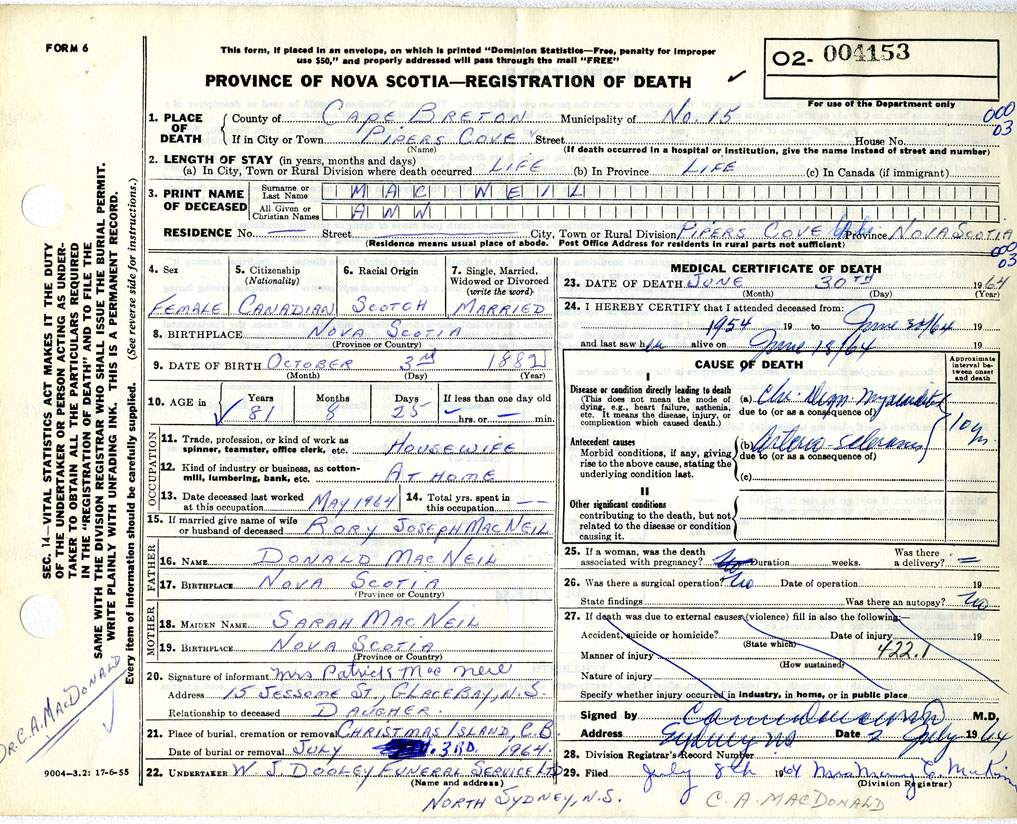 FORM 6
This form, if placed in an envelope, on which is printed "Dominion Statistics—Free, penalty for improper
use $50," and properly addressed will pass through the mail "FREE"
PROVINCE OF NOVA SCOTIA—REGISTRATION OF DEATH ✓
O2- 004153
For use of the Department only
000
03
1. PLACE OF DEATH { County of CAPE BRETON Municipality of No. 15
If in City or Town PIPERS COVE Street House No.
(Name) (If death occurred in a hospital or institution, give the name instead of street and number)
2. LENGTH OF STAY (in years, months and days)
(a) In City, Town or Rural Division where death occurred LIFE (b) In Province LIFE (c) In Canada (if immigrant)
3. PRINT NAME OF DECEASED { Surname or Last Name MAC WEIL
All Given or Christian Names AWW
RESIDENCE No. — Street — City, Town or Rural Division PIPERS COVE Province NOVA SCOTIA
(Residence means usual place of abode. Post Office Address for residents in rural parts not sufficient)
000
03
4. Sex 5. Citizenship (Nationality) 6. Racial Origin 7. Single, Married, Widowed or Divorced (write the word)
FEMALE CANADIAN SCOTCH MARRIED
8. BIRTHPLACE NOVA SCOTIA
(Province or Country)
9. DATE OF BIRTH OCTOBER 3rd 1882
(Month) (Day) (Year)
10. AGE in Years Months Days If less than one day old
✓ 81 8 25 – hrs. or – min.
OCCUPATION
11. Trade, profession, or kind of work as
spinner, teamster, office clerk, etc. HOUSEWIFE
12. Kind of industry or business, as cotton-
mill, lumbering, bank, etc. AT HOME
13. Date deceased last worked at this occupation MAY 1964 14. Total yrs. spent in this occupation — —
15. If married give name of wife
or husband of deceased RORY JOSEPH MACNEIL
FATHER
16. NAME DONALD MACNEIL
17. BIRTHPLACE NOVA SCOTIA
(Province or Country)
MOTHER
18. MAIDEN NAME SARAH MACNEIL
19. BIRTHPLACE NOVA SCOTIA
(Province or Country)
20. Signature of informant Mrs Patrick Mac Neil
Address 15 JESSOME ST, GLACE BAY, N.S.
Relationship to deceased DAUGHER.
21. Place of burial, cremation or removal CHRISTMAS ISLAND, C.B
Date of burial or removal JULY 3RD 1964.
22. UNDERTAKER W. J. DOOLEY FUNERAL SERVICE LTD
(Name and address)
NORTH SYDNEY, N.S.
MEDICAL CERTIFICATE OF DEATH
23. DATE OF DEATH JUNE 30TH 1964
(Month) (Day) (Year)
24. I HEREBY CERTIFY that I attended deceased from:
1954 19 to June 30/64 19
and last saw her alive on June 18/64 19
CAUSE OF DEATH
Approximate interval between onset and death
I
Disease or condition directly leading to death
(This does not mean the mode of dying, e.g., heart failure, asthenia, etc. It means the disease, injury, or complication which caused death.)
(a) Chr. Degn. Myocarditis
due to (or as a consequence of)
10 yr.
Antecedent causes
Morbid conditions, if any, giving rise to the above cause, stating the underlying condition last.
(b) Arterio-sclerosis
due to (or as a consequence of)
(c)
II
Other significant conditions
contributing to the death, but not related to the disease or condition causing it.
25. If a woman, was the death associated with pregnancy? Duration weeks. Was there a delivery? =
26. Was there a surgical operation? No Date of operation 19
State findings Was there an autopsy? No
27. If death was due to external causes (violence) fill in also the following:—
Accident, suicide or homicide? Date of injury 19
(State which)
Manner of injury 422.1
(How sustained)
Nature of injury
Specify whether injury occurred in industry, in home, or in public place
Signed by M.D.
Address Sydney NS Date 2 July 1964
28. Division Registrar's Record Number
29. Filed July 8th 1964 Mrs
(Division Registrar)
C. A. MACDONALD
SEC. 14—VITAL STATISTICS ACT MAKES IT THE DUTY
OF THE UNDERTAKER OR PERSON ACTING AS UNDER-
TAKER TO OBTAIN ALL THE PARTICULARS REQUIRED
IN THE "REGISTRATION OF DEATH" AND TO FILE THE
SAME WITH THE DIVISION REGISTRAR WHO SHALL ISSUE THE BURIAL PERMIT.
WRITE PLAINLY WITH UNFADING INK. THIS IS A PERMANENT RECORD.
Every item of information should be carefully supplied. (See reverse side for instructions.)
DR. C. A. MACDONALD
9004-3.2: 17-6-55